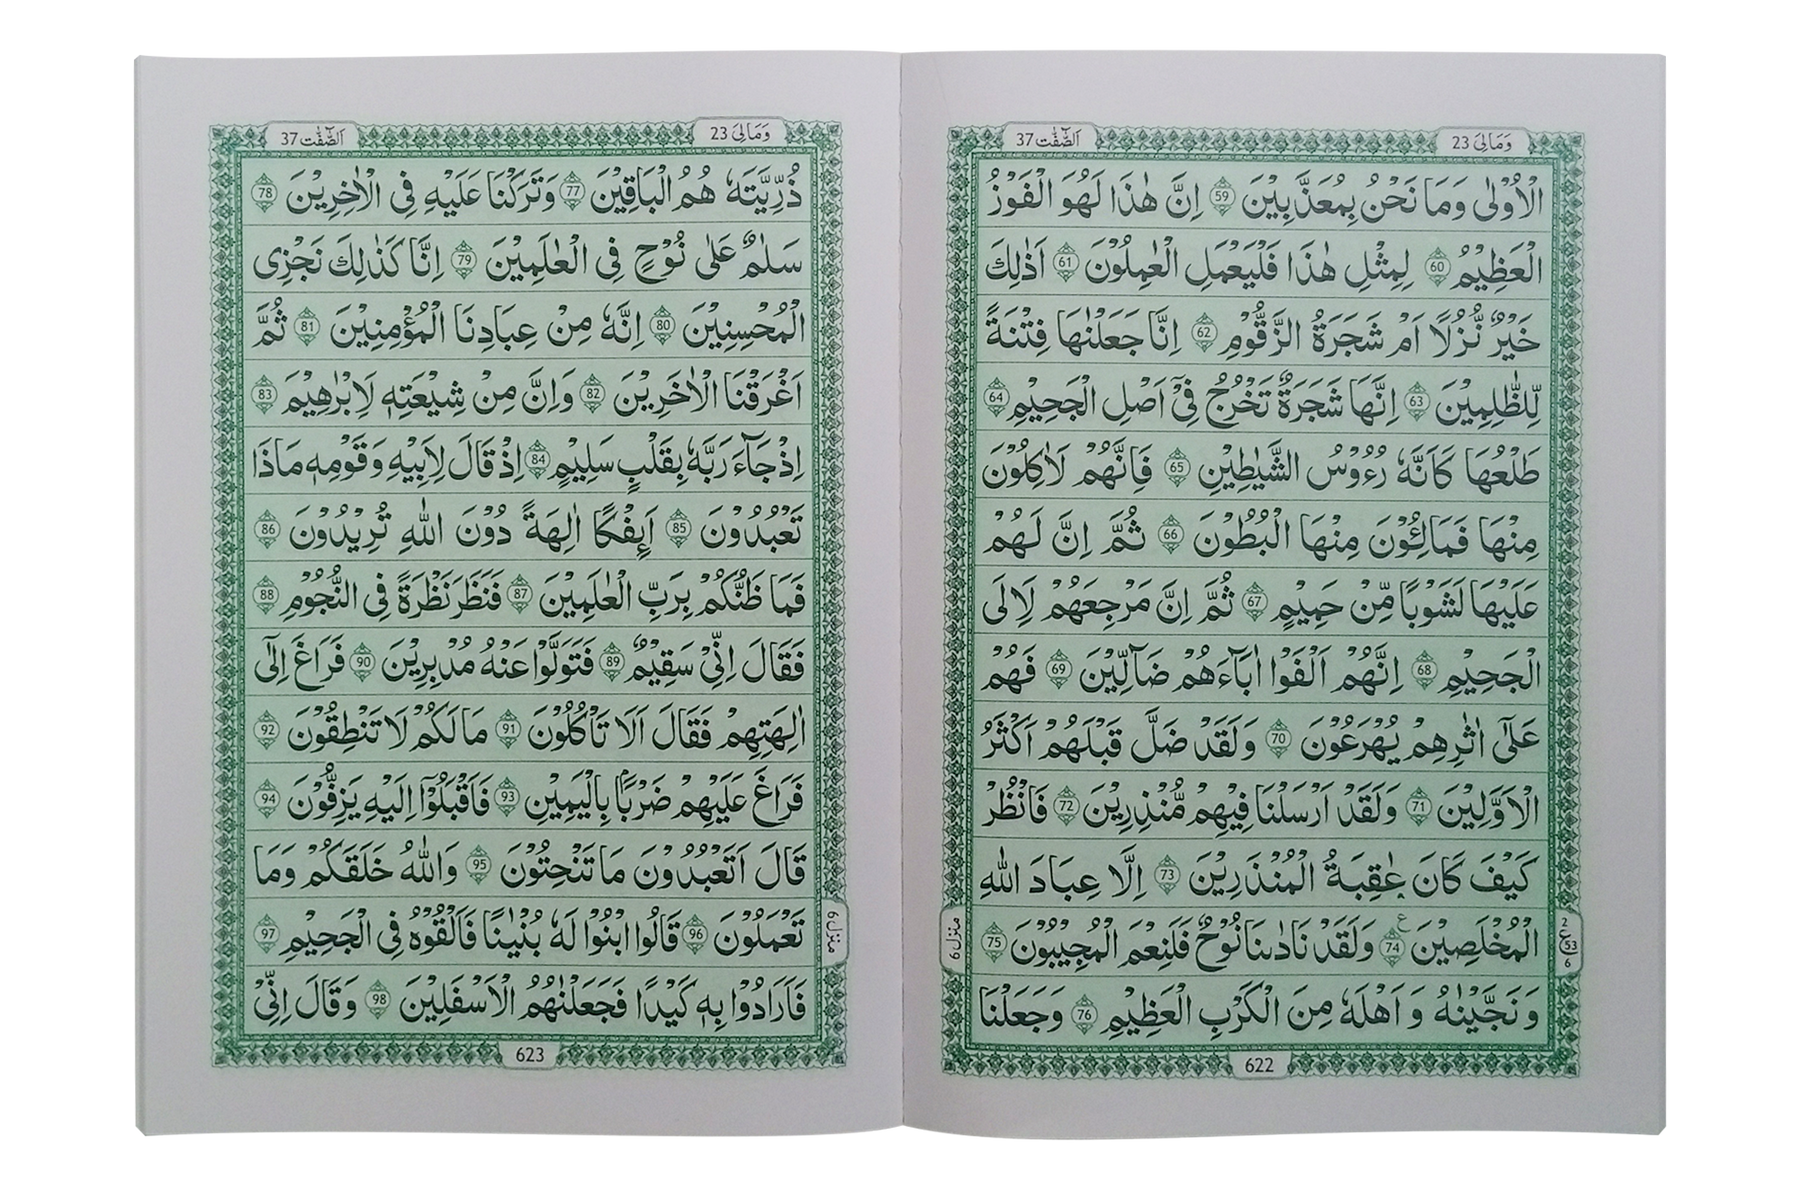 وَمَالِیَ 23
اَلصّٰٓفّٰت 37
الْاُوْلٰى وَمَا نَحْنُ بِمُعَذَّبِيْنَ 59 اِنَّ هٰذَا لَهُوَ الْفَوْزُ
الْعَظِيْمُ 60 لِمِثْلِ هٰذَا فَلْيَعْمَلِ الْعٰمِلُوْنَ 61 اَذٰلِكَ
خَيْرٌ نُّزُلًا اَمْ شَجَرَةُ الزَّقُّوْمِ 62 اِنَّا جَعَلْنٰهَا فِتْنَةً
لِّلظّٰلِمِيْنَ 63 اِنَّهَا شَجَرَةٌ تَخْرُجُ فِيْٓ اَصْلِ الْجَحِيْمِ 64
طَلْعُهَا كَاَنَّهٗ رُءُوْسُ الشَّيٰطِيْنِ 65 فَاِنَّهُمْ لَاٰكِلُوْنَ
مِنْهَا فَمَالِـُٔوْنَ مِنْهَا الْبُطُوْنَ 66 ثُمَّ اِنَّ لَهُمْ
عَلَيْهَا لَشَوْبًا مِّنْ حَمِيْمٍ 67 ثُمَّ اِنَّ مَرْجِعَهُمْ لَاۡاِلَى
الْجَحِيْمِ 68 اِنَّهُمْ اَلْفَوْا اٰبَآءَهُمْ ضَآلِّيْنَ 69 فَهُمْ
عَلٰٓى اٰثٰرِهِمْ يُهْرَعُوْنَ 70 وَلَقَدْ ضَلَّ قَبْلَهُمْ اَكْثَرُ
الْاَوَّلِيْنَ 71 وَلَقَدْ اَرْسَلْنَا فِيْهِمْ مُّنْذِرِيْنَ 72 فَانْظُرْ
كَيْفَ كَانَ عَاقِبَةُ الْمُنْذَرِيْنَ 73 اِلَّا عِبَادَ اللّٰهِ
الْمُخْلَصِيْنَ 74 وَلَقَدْ نَادٰىنَا نُوْحٌ فَلَنِعْمَ الْمُجِيْبُوْنَ 75
وَنَجَّيْنٰهُ وَاَهْلَهٗ مِنَ الْكَرْبِ الْعَظِيْمِ 76 وَجَعَلْنَا
2
ع 53
6
منزل 6
622
وَمَالِیَ 23
اَلصّٰٓفّٰت 37
ذُرِّيَّتَهٗ هُمُ الْبَاقِيْنَ 77 وَتَرَكْنَا عَلَيْهِ فِى الْاٰخِرِيْنَ 78
سَلٰمٌ عَلٰى نُوْحٍ فِى الْعٰلَمِيْنَ 79 اِنَّا كَذٰلِكَ نَجْزِى
الْمُحْسِنِيْنَ 80 اِنَّهٗ مِنْ عِبَادِنَا الْمُؤْمِنِيْنَ 81 ثُمَّ
اَغْرَقْنَا الْاٰخَرِيْنَ 82 وَاِنَّ مِنْ شِيْعَتِهٖ لَاِبْرٰهِيْمَ 83
اِذْ جَآءَ رَبَّهٗ بِقَلْبٍ سَلِيْمٍ 84 اِذْ قَالَ لِاَبِيْهِ وَقَوْمِهٖ مَاذَا
تَعْبُدُوْنَ 85 اَئِفْكًا اٰلِهَةً دُوْنَ اللّٰهِ تُرِيْدُوْنَ 86
فَمَا ظَنُّكُمْ بِرَبِّ الْعٰلَمِيْنَ 87 فَنَظَرَ نَظْرَةً فِى النُّجُوْمِ 88
فَقَالَ اِنِّيْ سَقِيْمٌ 89 فَتَوَلَّوْا عَنْهُ مُدْبِرِيْنَ 90 فَرَاغَ اِلٰٓى
اٰلِهَتِهِمْ فَقَالَ اَلَا تَاْكُلُوْنَ 91 مَا لَكُمْ لَا تَنْطِقُوْنَ 92
فَرَاغَ عَلَيْهِمْ ضَرْبًا بِالْيَمِيْنِ 93 فَاَقْبَلُوْٓا اِلَيْهِ يَزِفُّوْنَ 94
قَالَ اَتَعْبُدُوْنَ مَا تَنْحِتُوْنَ 95 وَاللّٰهُ خَلَقَكُمْ وَمَا
تَعْمَلُوْنَ 96 قَالُوا ابْنُوْا لَهٗ بُنْيَانًا فَاَلْقُوْهُ فِى الْجَحِيْمِ 97
فَاَرَادُوْا بِهٖ كَيْدًا فَجَعَلْنٰهُمُ الْاَسْفَلِيْنَ 98 وَقَالَ اِنِّيْ
منزل 6
623